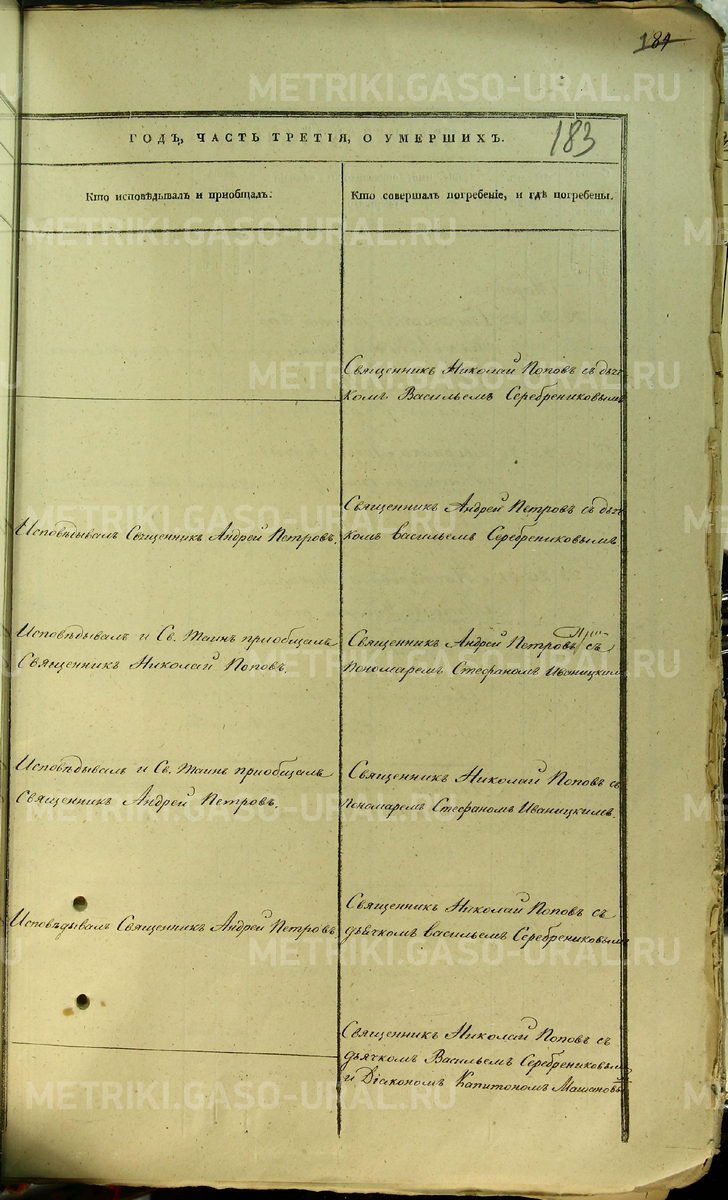 184
183
ГОДЪ, ЧАСТЬ ТРЕТІЯ, О УМЕРШИХЪ.
Кто исповѣдывалъ и приобщалъ.
Кто совершалъ погребеніе, и гдѣ погребены.
Священникъ Николай Поповъ съ дьяч
комъ Васильемъ Серебрениковымъ
Исповѣдывалъ Священникъ Андрей Петровъ.
Священникъ Андрей Петровъ съ дьяч
комъ Васильемъ Серебрениковымъ
Исповѣдывалъ и Св. Таинъ приобщалъ
Священникъ Николай Поповъ.
Священникъ Андрей Петровъ съ
Пономаремъ Стефаномъ Иваницкимъ
Исповѣдывалъ и Св. Таинъ приобщалъ
Священникъ Андрей Петровъ.
Священникъ Николай Поповъ съ
Пономаремъ Стефаномъ Иваницкимъ
Исповѣдывалъ Священникъ Андрей Петровъ
Священникъ Николай Поповъ съ
дьячкомъ Васильемъ Серебрениковымъ
Священникъ Николай Поповъ съ
дьячкомъ Васильемъ Серебрениковымъ
и Діакономъ Капитономъ
METRIKI.GASO-URAL.RU